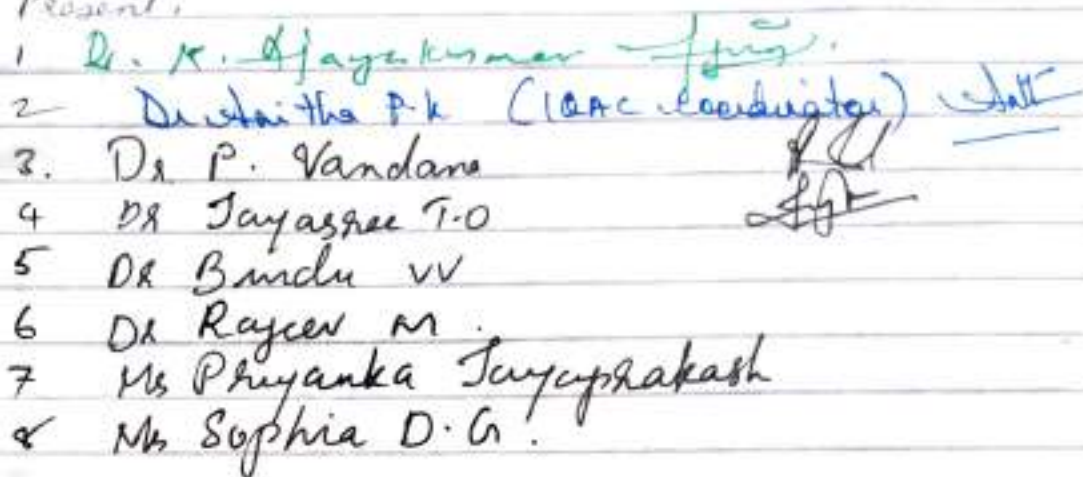 Present,
1 Dr. K. Ajayakumar
2 Dr Anitha P.K (IQAC Coordinator)
3. Dr P. Vandana
4 Dr Jayasree T.O
5 Dr Bindu VV
6 Dr Rajeev M.
7 Ms Priyanka Jayaprakash
8 Ms Sophia D.G.